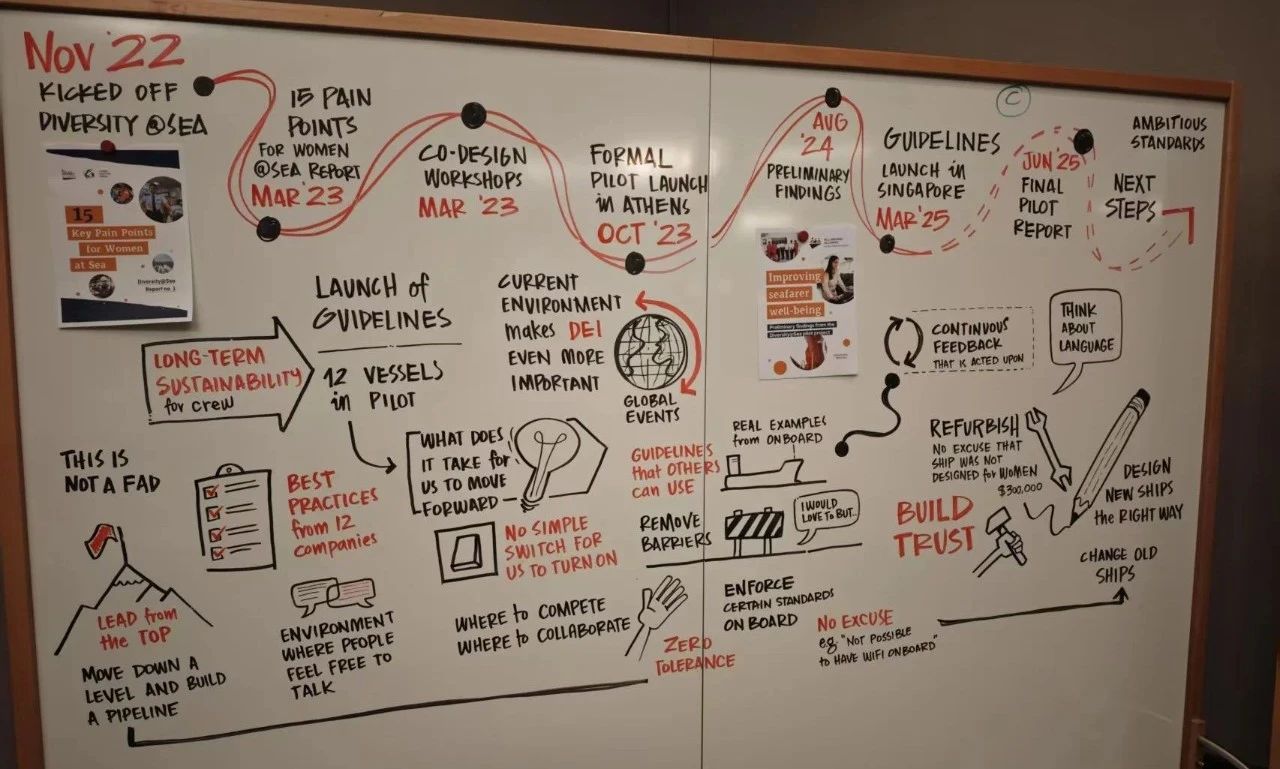 Nov '22
KICKED OFF
DIVERSITY @SEA
15
Key Pain Points
for Women
at Sea
Diversity@Sea
Report no. 1
15 PAIN
POINTS
FOR WOMEN
@SEA REPORT
MAR '23
CO-DESIGN
WORKSHOPS
MAR '23
FORMAL
PILOT LAUNCH
in ATHENS
OCT '23
AUG
'24
PRELIMINARY
FINDINGS
C
GUIDELINES
LAUNCH in
SINGAPORE
MAR '25
JUN '25
FINAL
PILOT
REPORT
NEXT
STEPS
AMBITIOUS
STANDARDS
LONG-TERM
SUSTAINABILITY
for crew
LAUNCH of
GUIDELINES
12 VESSELS
in PILOT
CURRENT
ENVIRONMENT
makes DEI
EVEN MORE
IMPORTANT
GLOBAL
EVENTS
Improving
seafarer
well-being
Preliminary findings from the
Diversity@Sea pilot project
CONTINUOUS
FEEDBACK
THAT IS ACTED UPON
THINK
ABOUT
LANGUAGE
THIS IS
NOT A FAD
BEST
PRACTICES
from 12
companies
WHAT DOES
IT TAKE for
US TO MOVE
FORWARD
GUIDELINES
that OTHERS
can USE
REAL EXAMPLES
from ONBOARD
REFURBISH
NO EXCUSE THAT
SHIP WAS NOT
DESIGNED for WOMEN
$300,000
DESIGN
NEW SHIPS
the RIGHT WAY
LEAD from
the TOP
MOVE DOWN A
LEVEL AND BUILD
A PIPELINE
ENVIRONMENT
WHERE PEOPLE
FEEL FREE TO
TALK
NO SIMPLE
SWITCH FOR
US TO TURN ON
WHERE to COMPETE
WHERE to COLLABORATE
ZERO
TOLERANCE
REMOVE
BARRIERS
I WOULD
LOVE TO BUT..
ENFORCE
CERTAIN STANDARDS
ON BOARD
NO EXCUSE
eg "NOT POSSIBLE
to HAVE WIFI ONBOARD"
BUILD
TRUST
CHANGE OLD
SHIPS